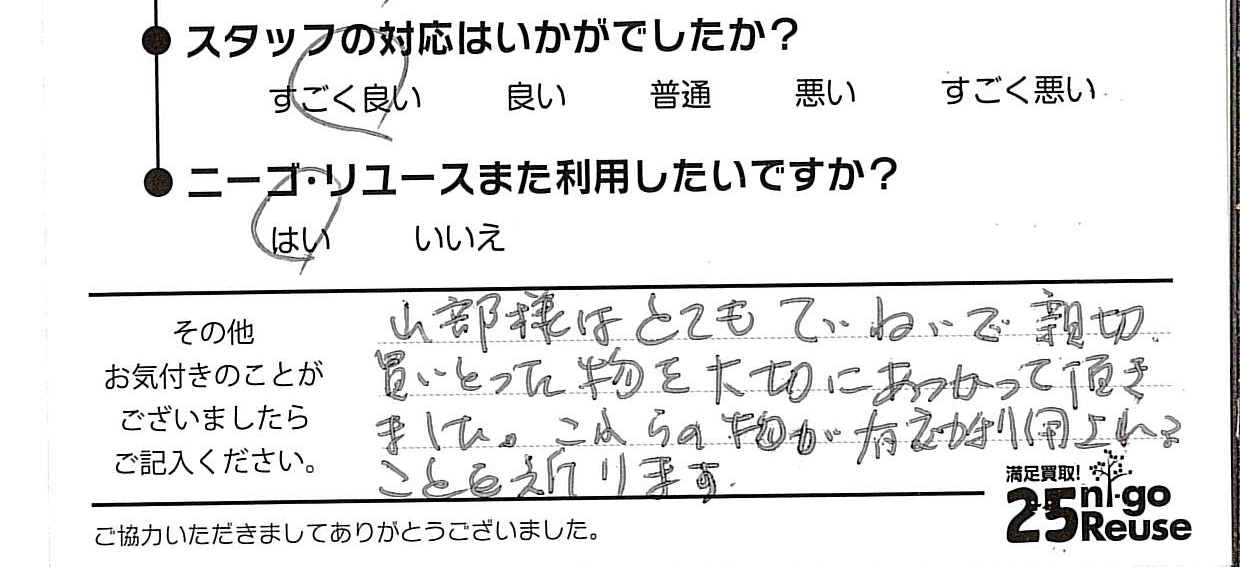 スタッフの対応はいかがでしたか？
すごく良い 良い 普通 悪い すごく悪い
ニーゴ・リユースまた利用したいですか？
はい いいえ
その他
お気付きのことが
ございましたら
ご記入ください。
山部様はとてもていねいで親切
買いとった物を大切にあつかって頂き
ました。これらの物が有効利用される
ことを祈ります。
満足買取!
25 ni-go
Reuse
ご協力いただきましてありがとうございました。